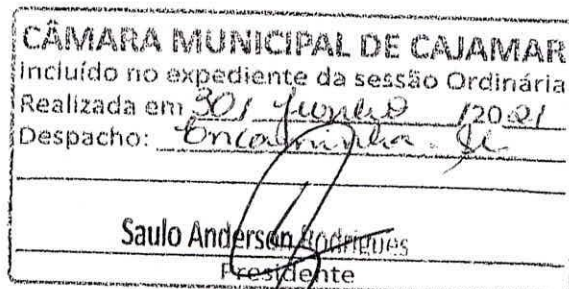 CÂMARA MUNICIPAL DE CAJAMAR
Incluído no expediente da sessão Ordinária
Realizada em 30/ junho /2021
Despacho: Encaminha-se
Saulo Anderson Rodrigues
Presidente